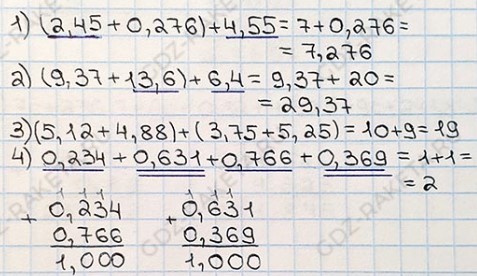 1) (2,45 + 0,276) + 4,55 = 7 + 0,276 =
= 7,276
2) (9,37 + 13,6) + 6,4 = 9,37 + 20 =
= 29,37
3) (5,12 + 4,88) + (3,75 + 5,25) = 10 + 9 = 19
4) 0,234 + 0,631 + 0,766 + 0,369 = 1 + 1 =
= 2
1 1 1
+ 0,234
0,766
1,000
1 1 1
+ 0,631
0,369
1,000